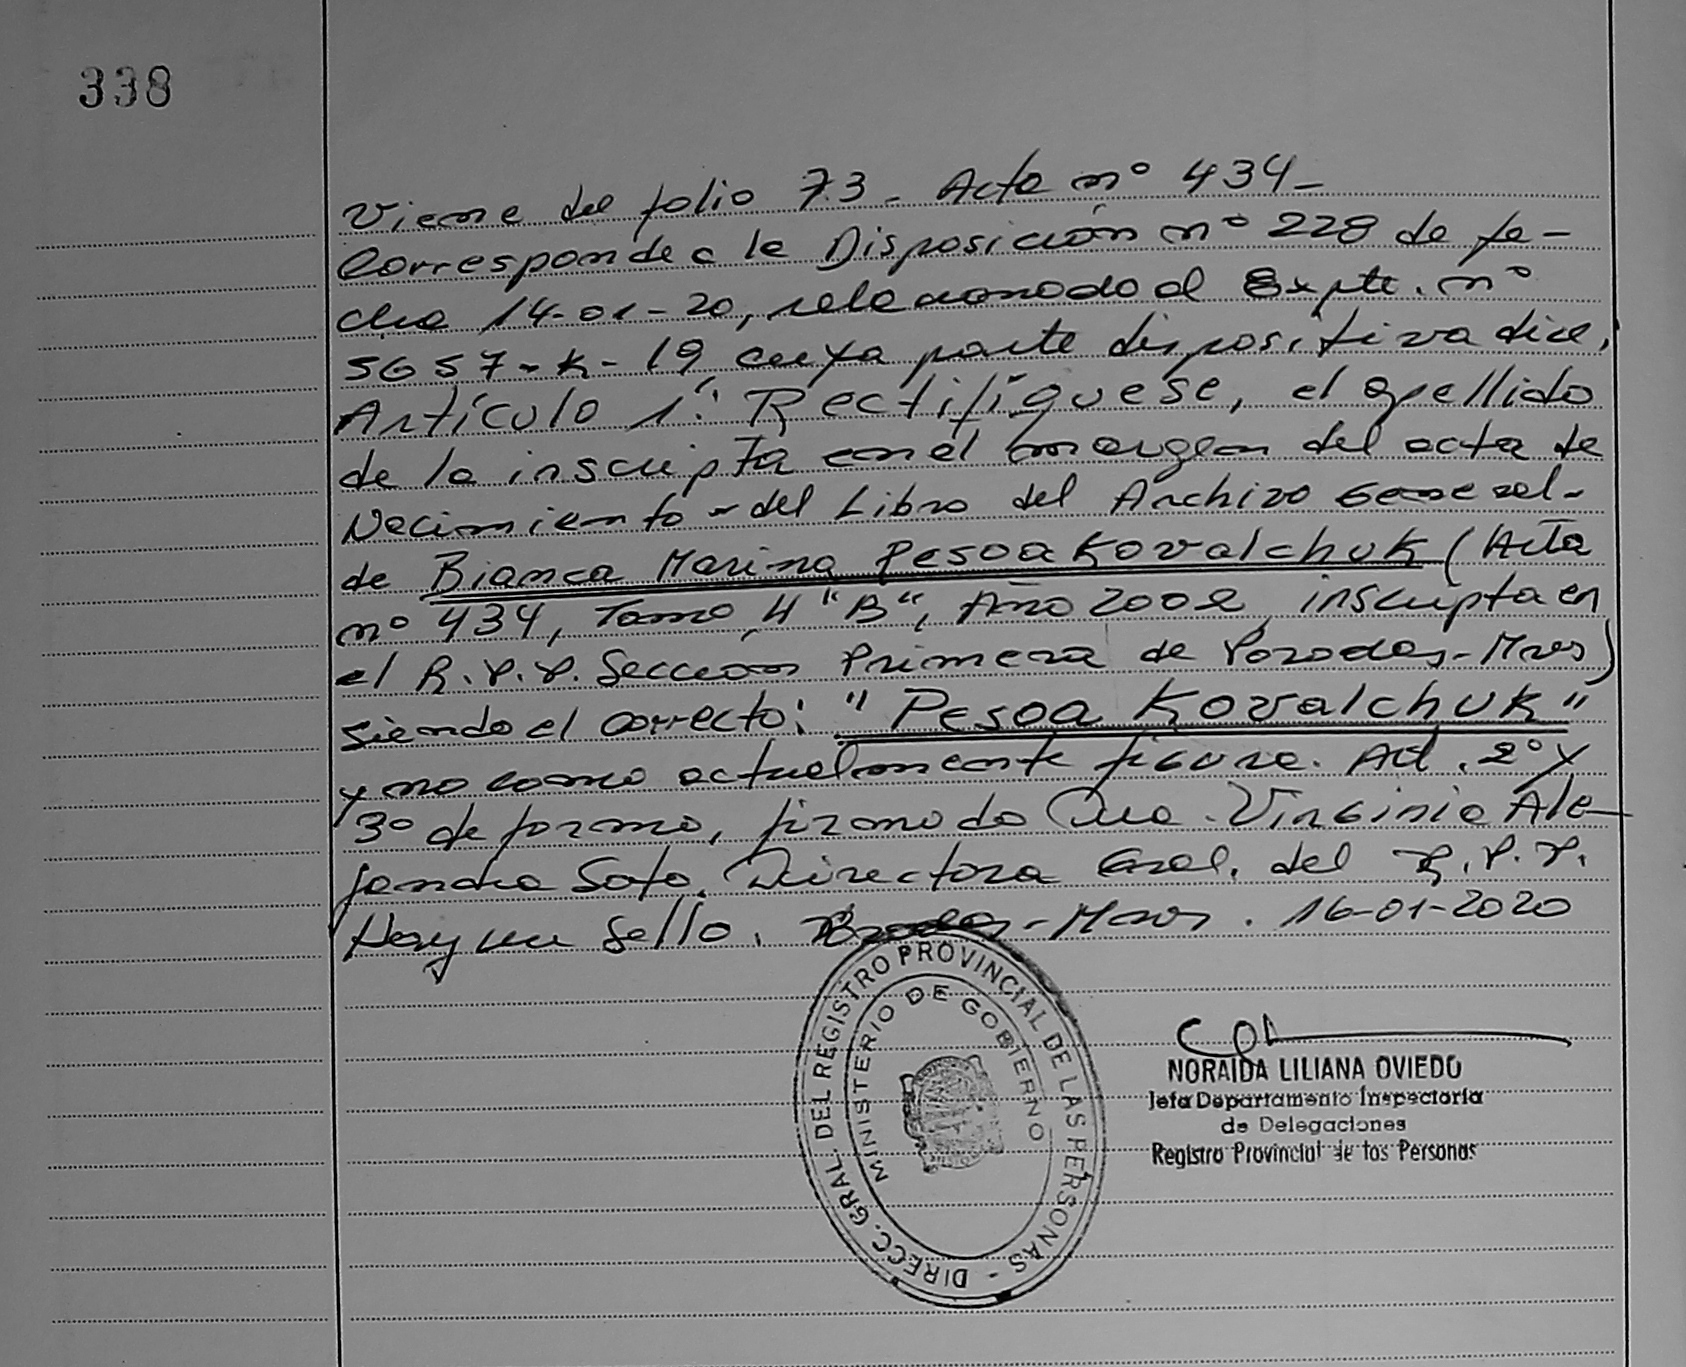 338
Viene del folio 73 - Acta nº 434 -
Corresponde a la Disposición nº 228 de fe-
cha 14-01-20, relacionado al Expte. nº
5657-K-19 cuya parte dispositiva dice,
Artículo 1º: Rectifíquese, el apellido
de la inscripta en el margen del acta de
Nacimiento - del Libro del Archivo General -
de Bianca Marina Pesoa Kovalchuk (Acta
nº 434, Tomo 4 "B", Año 2002 inscripta en
el R.P.P. Sección Primera de Posadas - Mnes)
siendo el correcto: "Pesoa Kovalchuk"
y no como actualmente figura. Art. 2º y
3º de forma, firmado Dra. Virginia Ale-
jandra Soto. Directora Gral. del R.P.P.
Hay un sello. Posadas - Mnes. 16-01-2020
DIRECC. GRAL. DEL REGISTRO PROVINCIAL DE LAS PERSONAS -
MINISTERIO DE GOBIERNO
NORAIDA LILIANA OVIEDO
Jefa Departamento Inspectoría
de Delegaciones
Registro Provincial de las Personas